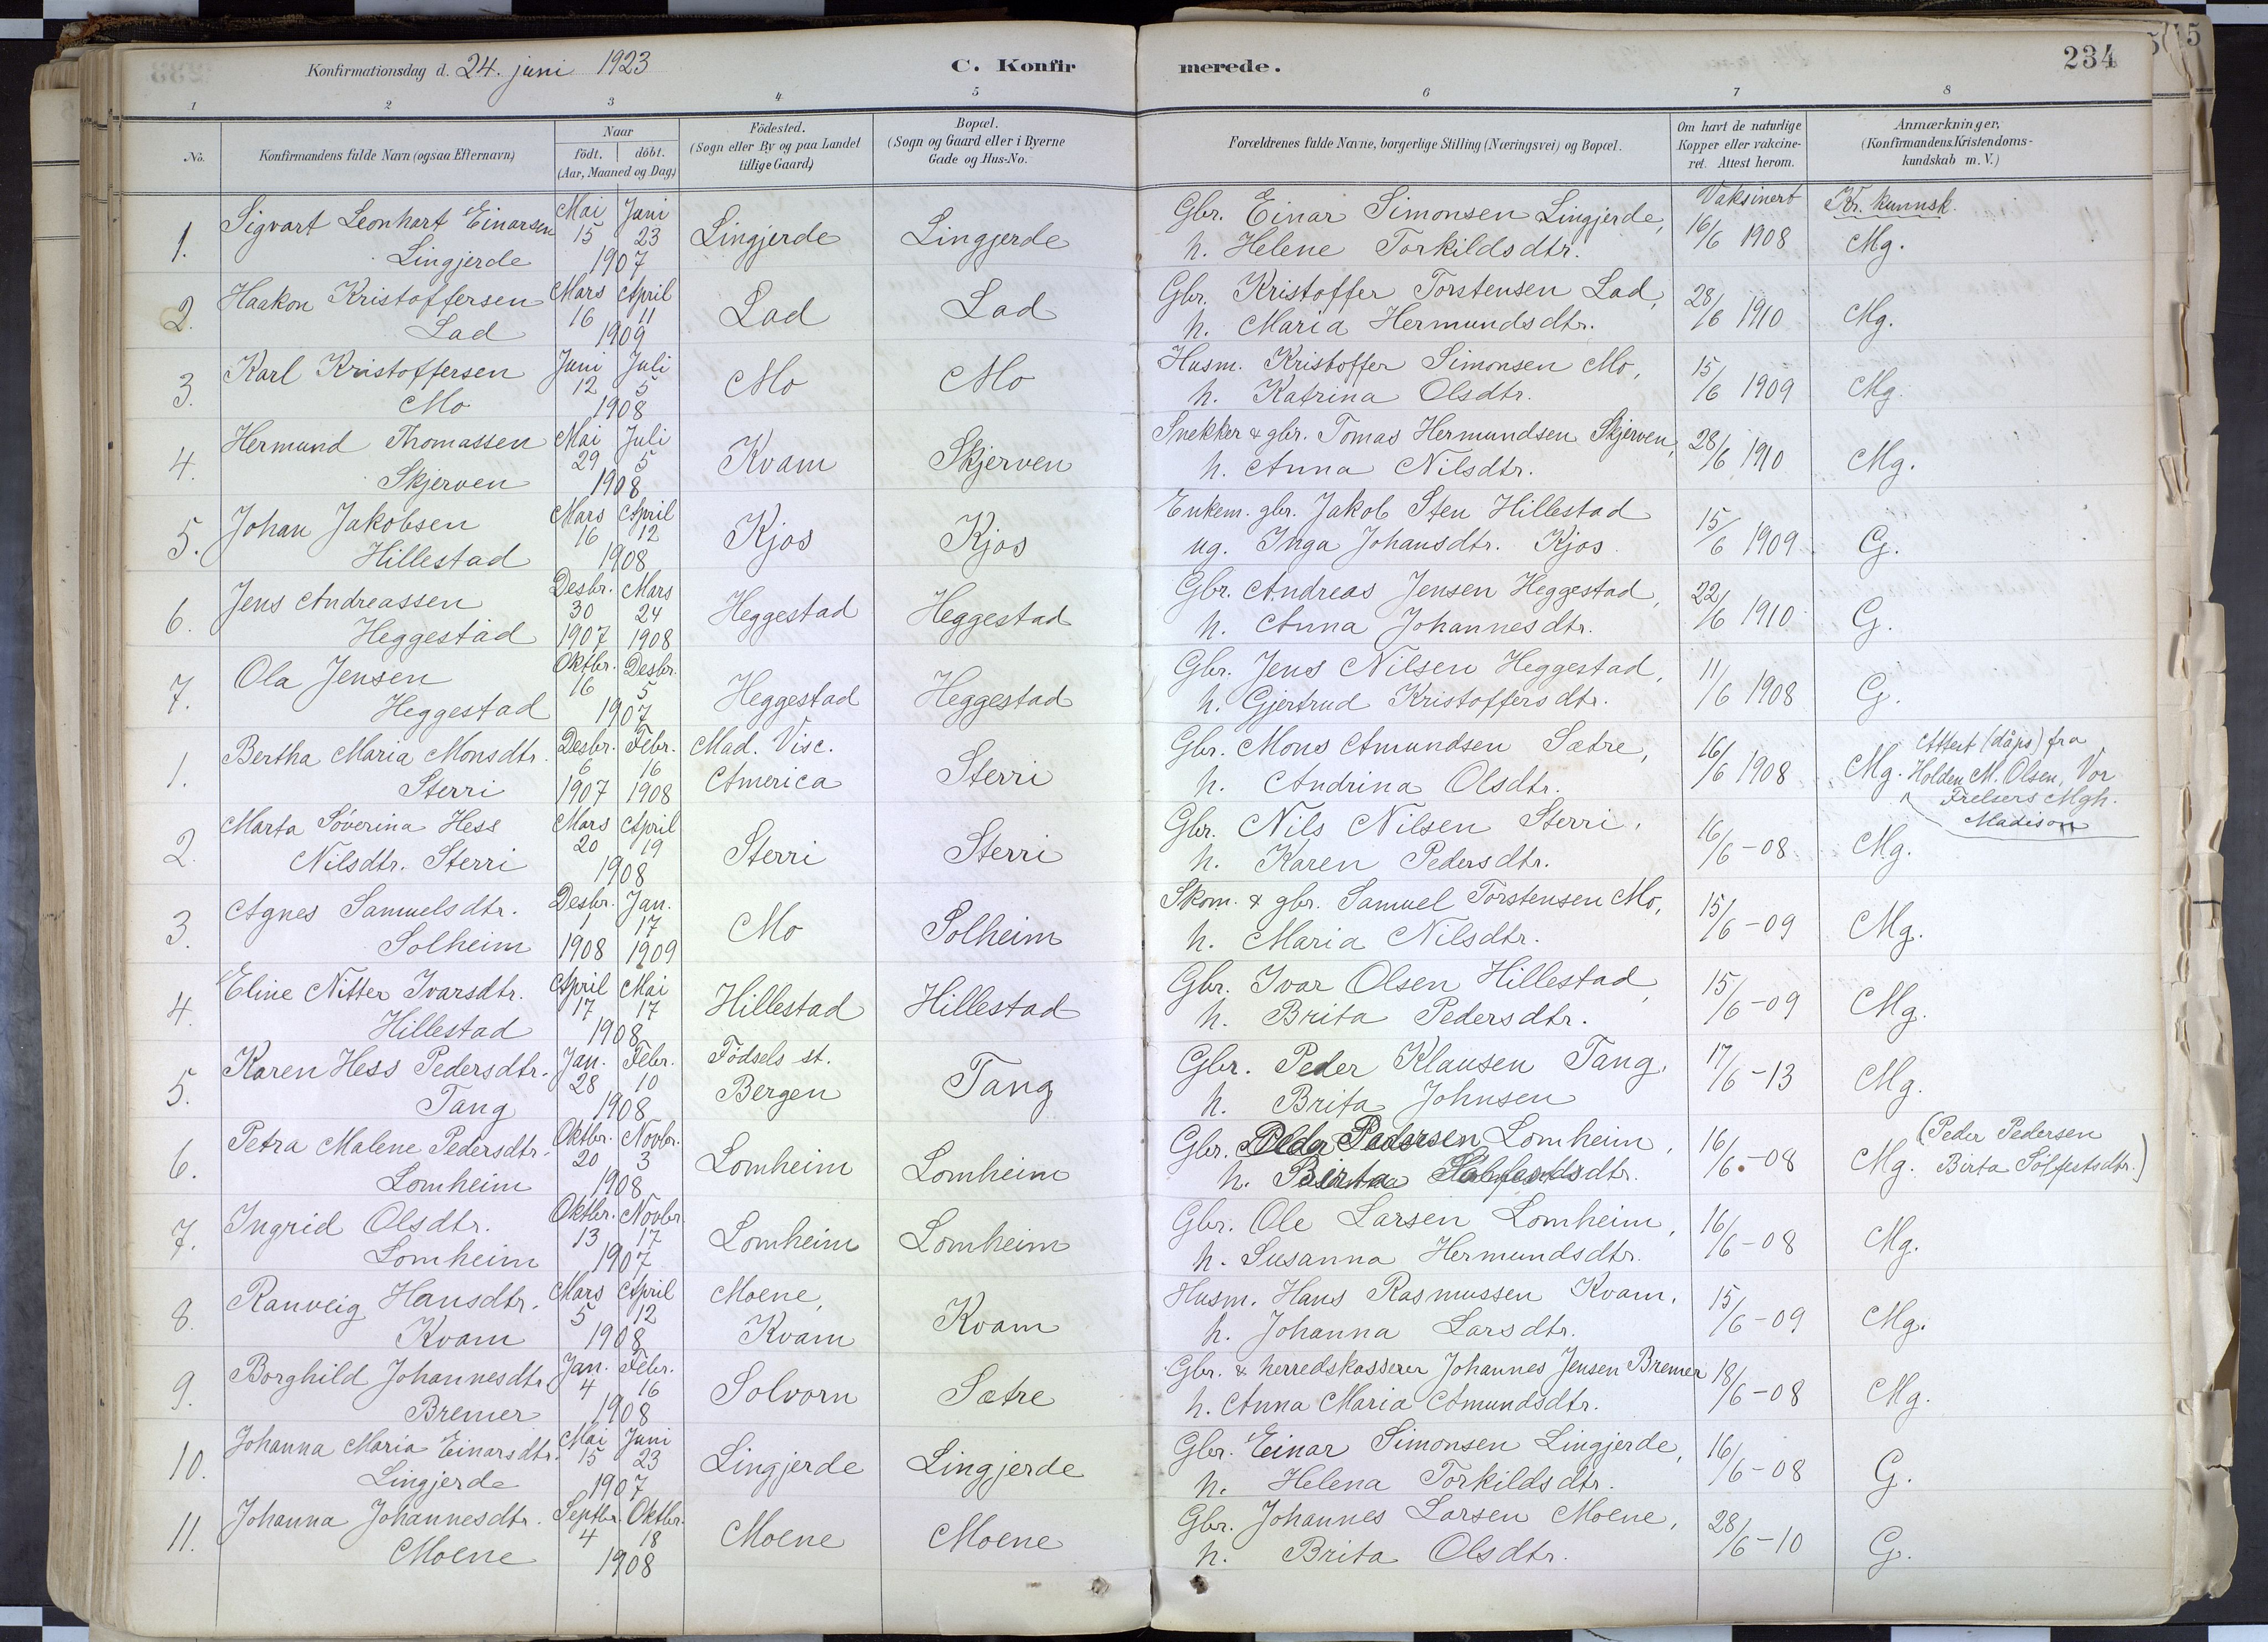 Konfirmationsdag d. 24. juni 1923
C. Konfirmerede.
234
1 2 3 4 5 6 7 8
No.
Konfirmandens fulde Navn (ogsaa Efternavn)
Naar
födt. döbt.
(Aar, Maaned og Dag)
Födested.
(Sogn eller By og paa Landet
tillige Gaard)
Bopæl.
(Sogn og Gaard eller i Byerne
Gade og Hus-No.
Forældrenes fulde Navne, borgerlige Stilling (Næringsvei) og Bopæl.
Om havt de naturlige
Kopper eller vakcine-
ret. Attest herom.
Anmærkninger,
(Konfirmandens Kristendoms-
kundskab m. V.)
Vaksinert Kr. kunnsk.
1. Sigvart Leonhart Einarsen Mai 15 Juni 23 Lingjerde Lingjerde Gbr. Einar Simonsen Lingjerde, 16/6 1908 Mg.
Lingjerde 1907 h. Helene Torkildsdtr.
2. Haakon Kristoffersen Mars 16 April 11 Lad Lad Gbr. Kristoffer Torstensen Lad, 28/6 1910 Mg.
Lad 1909 h. Maria Hermundsdtr.
3. Karl Kristoffersen Juni 12 Juli 5 Mo Mo Husm. Kristoffer Simonsen Mo, 15/6 1909 Mg.
Mo 1908 h. Katrina Olsdtr.
4. Hermund Thomassen Mai 29 Juli 5 Kvam Skjerven Snekker & gbr. Tomas Hermundsen Skjerven, 28/6 1910 Mg.
Skjerven 1908 h. Anna Nilsdtr.
5. Johan Jakobsen Mars 16 April 12 Kjos Kjos Enkem. gbr. Jakob Sten Hillestad 15/6 1909 G.
Hillestad 1908 ug. Inga Johansdtr. Kjos
6. Jens Andreassen Desbr. 30 Mars 24 Heggestad Heggestad Gbr. Andreas Jensen Heggestad, 22/6 1910 G.
Heggestad 1907 1908 h. Anna Johannesdtr.
7. Ola Jensen Oktbr. 16 Desbr. 5 Heggestad Heggestad Gbr. Jens Nilsen Heggestad, 11/6 1908 G.
Heggestad 1907 h. Gjertrud Kristoffersdtr.
1. Bertha Maria Monsdtr. Desbr. 6 Febr. 16 Mad. Visc. America Sterri Gbr. Mons Amundsen Sætre, 16/6 1908 Mg. Attest (dåps) fra
Sterri 1907 1908 h. Andrina Olsdtr. Holden M. Olsen, Vor
Frelsers Mgh.
Madison
2. Marta Söverina Hess Mars 20 April 19 Sterri Sterri Gbr. Nils Nilsen Sterri, 16/6-08 Mg.
Nilsdtr. Sterri 1908 h. Karen Pedersdtr.
3. Agnes Samuelsdtr. Desbr. 1 Jan. 17 Mo Solheim Skom. & gbr. Samuel Torstensen Mo, 15/6-09 Mg.
Solheim 1908 1909 h. Maria Nilsdtr.
4. Eline Nitter Ivarsdtr. April 17 Mai 17 Hillestad Hillestad Gbr. Ivar Olsen Hillestad, 15/6-09 Mg.
Hillestad 1908 h. Brita Pedersdtr.
5. Karen Hess Pedersdtr. Jan. 28 Febr. 10 Födsels st. Bergen Tang Gbr. Peder Klausen Tang, 17/6-13 Mg.
Tang 1908 h. Brita Johnsen
6. Petra Malene Pedersdtr. Oktbr. 20 Novbr. 3 Lomheim Lomheim Gbr. Peder Pedersen Lomheim, 16/6-08 Mg. (Peder Pedersen
Lomheim 1908 h. Birta Sölfestsdtr. Birta Sölfestsdtr.)
7. Ingrid Olsdtr. Oktbr. 13 Novbr. 17 Lomheim Lomheim Gbr. Ole Larsen Lomheim, 16/6-08 Mg.
Lomheim 1907 h. Susanna Hermundsdtr.
8. Ranveig Hansdtr. Mars 5 April 12 Moene, Kvam Kvam Husm. Hans Rasmussen Kvam, 15/6-09 Mg.
Kvam 1908 h. Johanna Larsdtr.
9. Borghild Johannesdtr. Jan. 4 Febr. 16 Solvorn Sætre Gbr. & herredskasserer Johannes Jensen Bremer 18/6-08 Mg.
Bremer 1908 h. Anna Maria Amundsdtr.
10. Johanna Maria Einarsdtr. Mai 15 Juni 23 Lingjerde Lingjerde Gbr. Einar Simonsen Lingjerde, 16/6-08 G.
Lingjerde 1907 h. Helena Torkildsdtr.
11. Johanna Johannesdtr. Septbr. 4 Oktbr. 18 Moene Moene Gbr. Johannes Larsen Moene, 28/6-10 G.
Moene 1908 h. Brita Olsdtr.